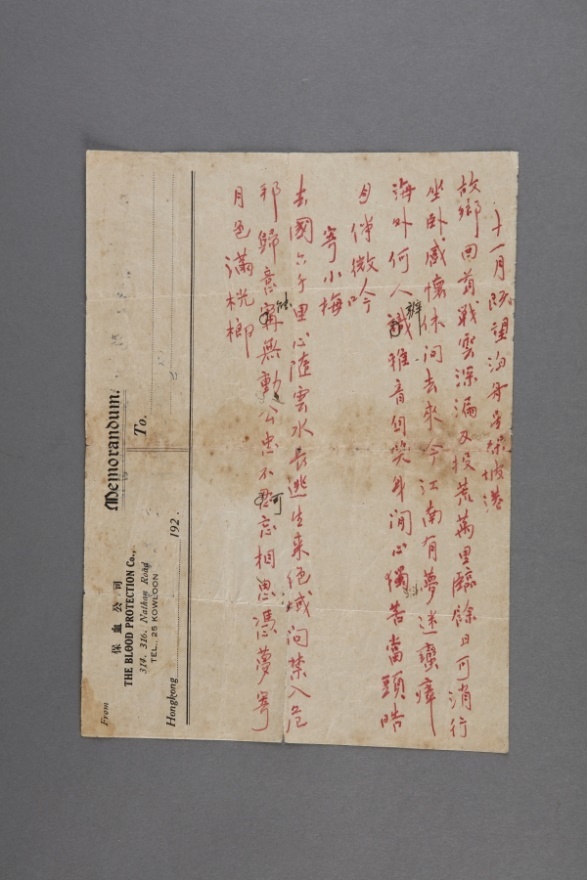 十一月既望泊舟星嘉坡港
故鄉回首戰雲深漏及投荒萬里臨餘日可消行
坐臥感懷休問去來今江南有夢迷蠻瘴
海外何人識辨雅音自笑身閒心獨苦當頭皓
月伴微吟
寄小梅
去國六千里心隨雲水長逃生來絕域問禁入危
邦歸意寧能無動公忠不可忘相思憑夢寄
月色滿桄榔
Memorandum.
To.
From
保血公司
THE BLOOD PROTECTION Co.,
314, 316, Nathan Road
TEL. 25 KOWLOON
Hongkong 192 .